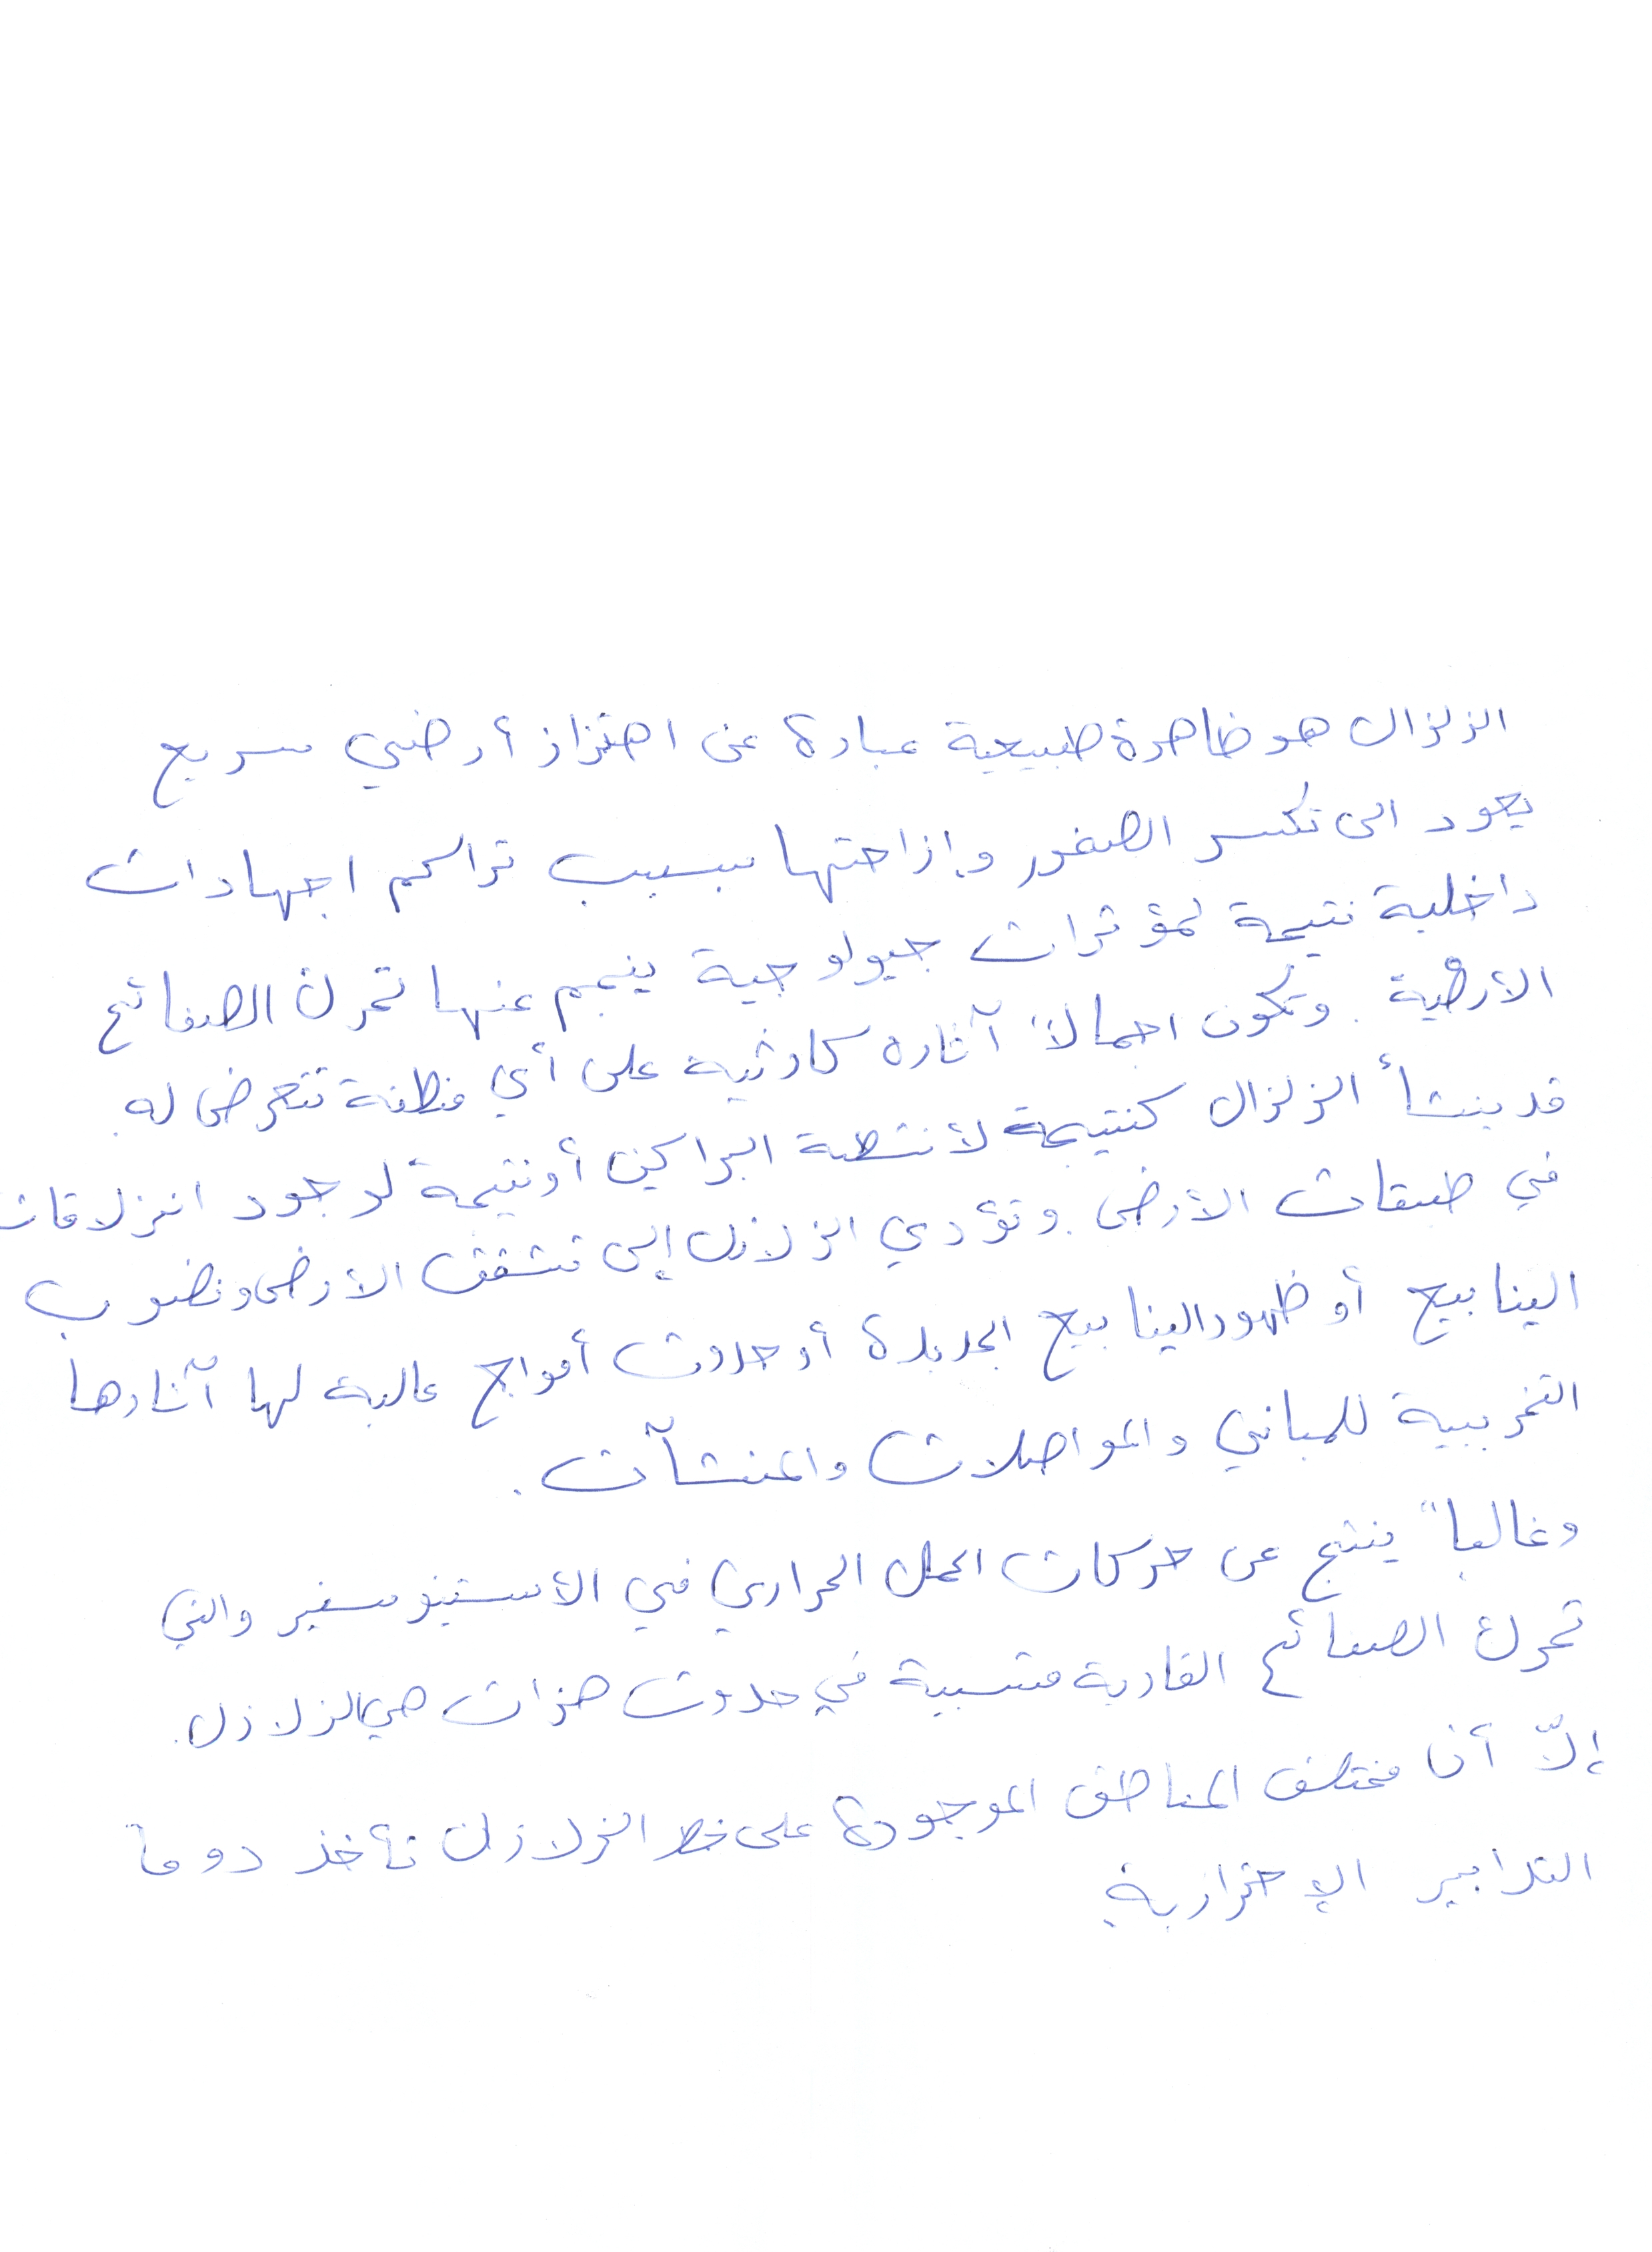 الزلزال هو ظاهرة طبيعية عبارة عن اهتزاز أرضي سريع
يعود الى تكسر الصخور وإزاحتها بسبب تراكم اجهادات
داخلية نتيجة لمؤثرات جيولوجية ينجم عنها تحرك الصفائح
الأرضية. وتكون اجمالاً آثاره كارثية على أي منطقة تتعرض له.
قد ينشأ الزلزال كنتيجة لأنشطة البراكين أو نتيجة لوجود انزلاقات
في طبقات الأرض. وتؤدي الزلازل إلى تشقق الأرض ونضوب
الينابيع أو ظهور الينابيع الجديدة أو حدوث أمواج عالية لها آثارها
التخريبية للمباني والمواصلات والمنشآت.
وغالباً ينتج عن حركات الحمل الحراري في الأستينوسفير والتي
تحرك الصفائح القارية متسببة في حدوث هزات هي الزلازل.
إلاّ أن مختلف المناطق الموجودة على خط الزلازل تأخذ دوماً
التدابير الإحترازية.